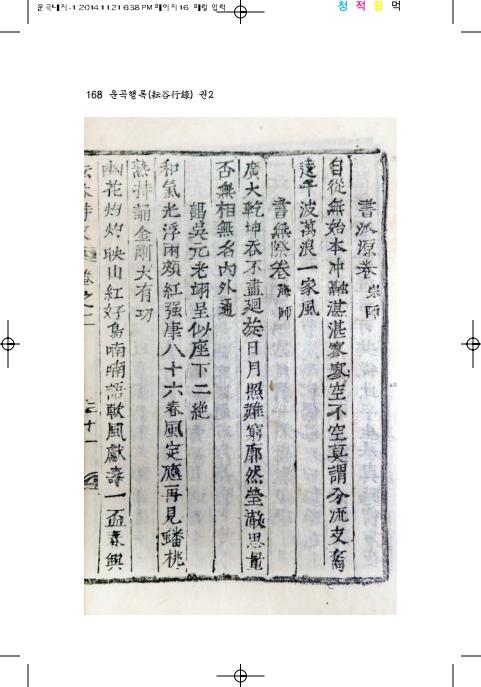 운곡내지-1 2014.11.21 6:38 PM 페이지16
청 적 황 먹
168 운곡행록(耘谷行錄) 권2
書泒源卷 宗師
自從無始本冲融湛湛寥寥空不空莫謂分流支裔
遠千波萬浪一家風
書無際卷 海師
廣大乾坤呑不盡廻旋日月照難窮廓然瑩澈思量
否無相無名內外通
謁吳元老翊呈似座下二絶
和氣光浮兩頰紅强康八十六春風定應再見蟠桃
熟持誦金剛大有功
幽花灼灼映山紅好鳥喃喃語軟風獻壽一盃乘興
卷之二 三十一